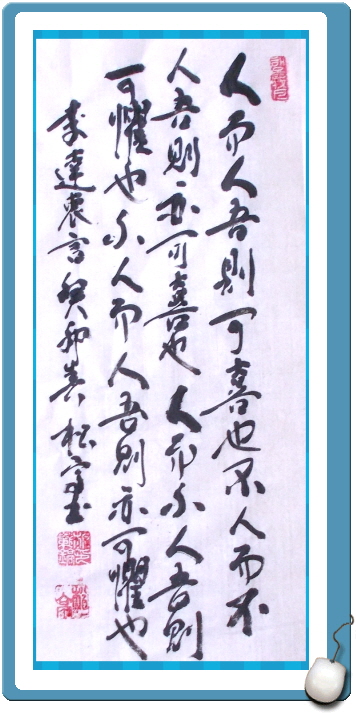 人而人吾則可喜也不人而不
人吾則亦可喜也人而不人吾則
可懼也不人而人吾則亦可懼也
李達衷言癸卯春松